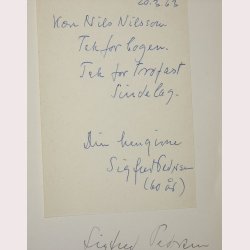 20.3.63
Kon Nils Nilsson
Tak for bogen.
Tak for Trofast
Sindelag.
Din hengivne
Sigfred Pedersen
(60 år)
Sigfred Pedersen